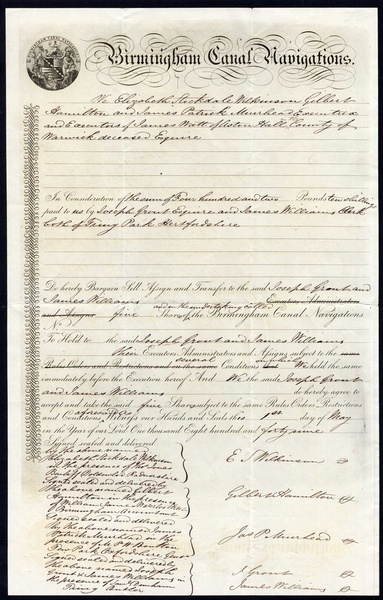 Birmingham Canal Navigations.
We Elizabeth Stockdale Wilkinson Gilbert
Hamilton and James Patrick Muirhead Executrix
and Executors of James Watt of Aston Hall County of
Warwick deceased Esquire
In Consideration of the sum of Four hundred and two Pounds ten shillings
paid to us by Joseph Grout Esquire and James Williams Clerk
both of Tring Park Hertfordshire
Do hereby Bargain Sell Assign and Transfer to the said Joseph Grout and
James Williams Executors Administrators
and Assigns five Shares of the Birmingham Canal Navigations
No
To Hold to the said Joseph Grout and James Williams
their Executors Administrators and Assigns subject to the same
Rules Orders and Restrictions and on the same several Conditions that We held the same
immediately before the Execution hereof And We the said Joseph Grout
and James Williams do hereby agree to
accept and take the said five Shares subject to the same Rules Orders Restrictions
and Conditions Witness our Hands and Seals this 1st day of May
in the Year of our Lord One thousand Eight hundred and forty nine
Signed sealed and delivered
by the above named
Elizabeth Stockdale Wilkinson
in the presence of
E. S. Wilkinson
Signed sealed and delivered by
the above named Gilbert
Hamilton in the presence
of William James
Birmingham
Gilbert Hamilton
Signed sealed and delivered
by the above named James
Patrick Muirhead in the
presence of
Oxfordshire
Jas P. Muirhead
Signed sealed and delivered by
the above named Joseph
Grout & James Williams in
the presence of
Tring
J. Grout
James Williams